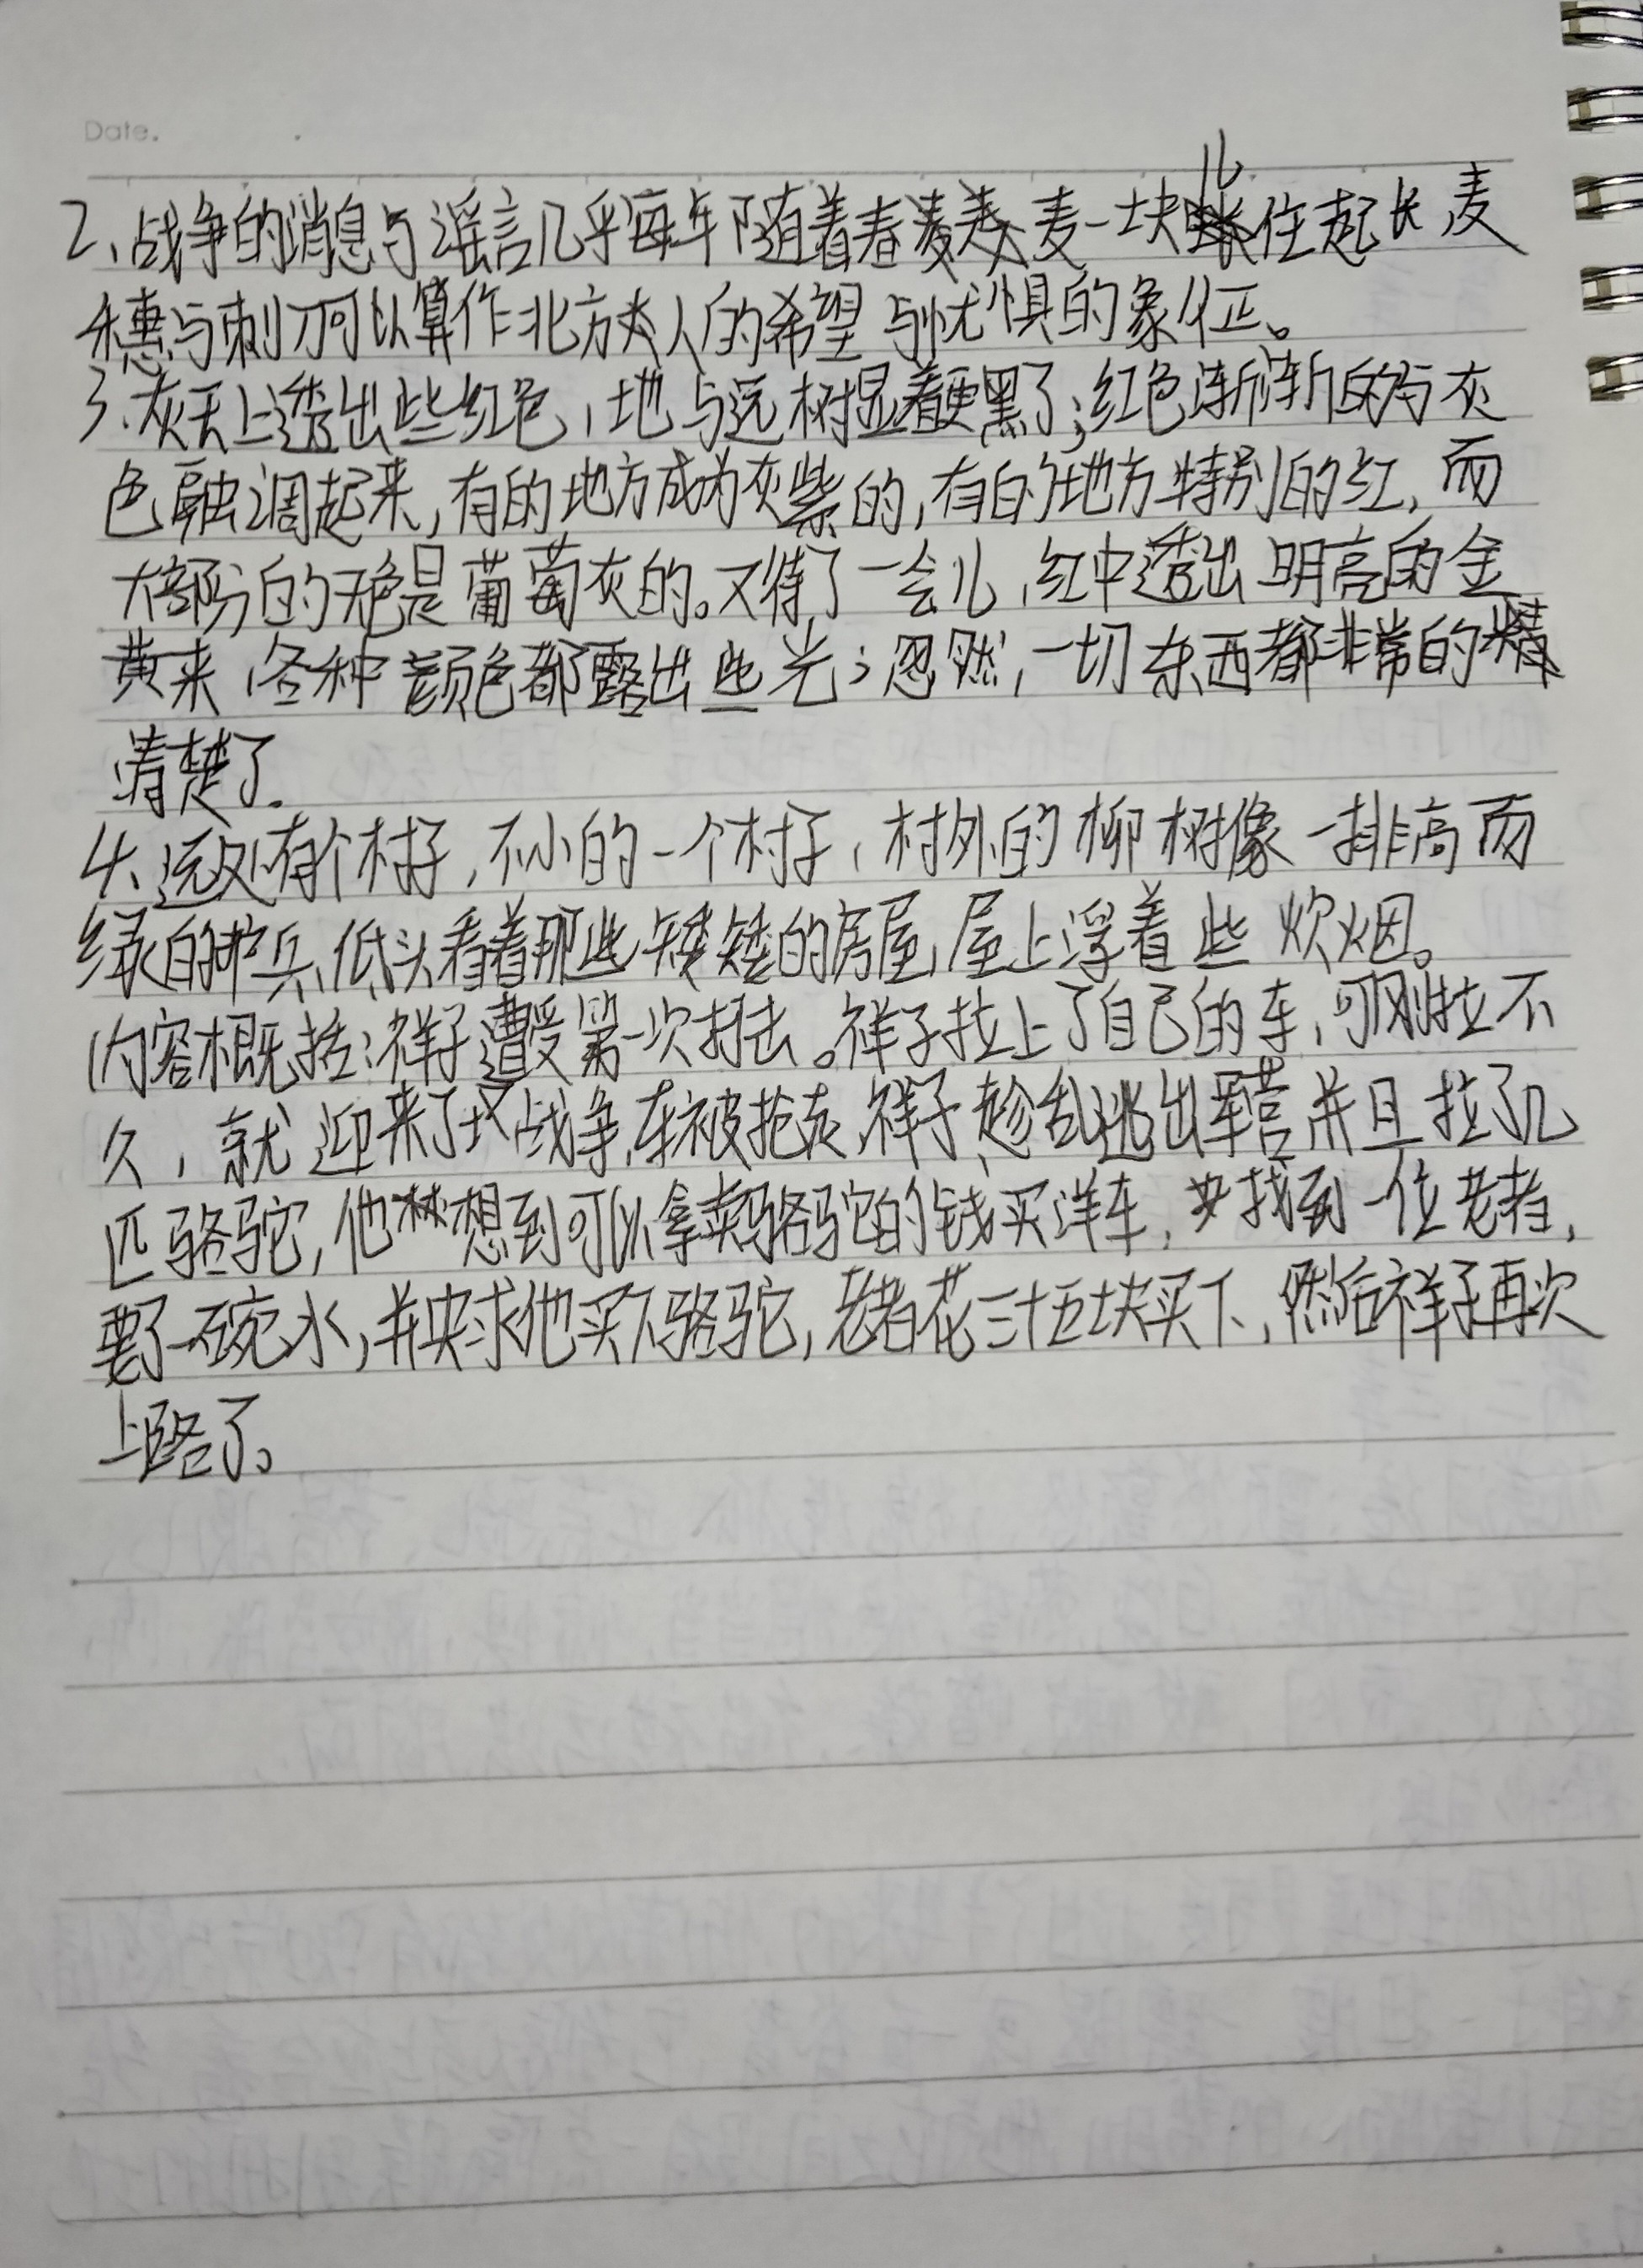 Date.
2、战争的消息与谣言几乎每年随着春麦一块儿往起长,麦
穗与刺刀可以算作北方人的希望与忧惧的象征。
3、灰天上透出些红色,地与远树显着更黑了;红色渐渐的与灰
色融调起来,有的地方成为灰紫的,有的地方特别的红,而
大部分的天色是葡萄灰的。又待了一会儿,红中透出明亮的金
黄来,各种颜色都露出些光;忽然,一切东西都非常的
清楚了。
4、远处有个村子,不小的一个村子,村外的柳树像一排高而
绿的护兵,低头看着那些矮矮的房屋,屋上浮着些炊烟。
内容概括:祥子遭受第一次打击。祥子拉上了自己的车,可刚拉不
久,就迎来了战争,车被抢走,祥子趁乱逃出军营并且拉了几
匹骆驼,他梦想到可以拿卖骆驼的钱买洋车,找到一位老者,
要了一碗水,并央求他买下骆驼,老者花三十五块买下,然后祥子再次
上路了。